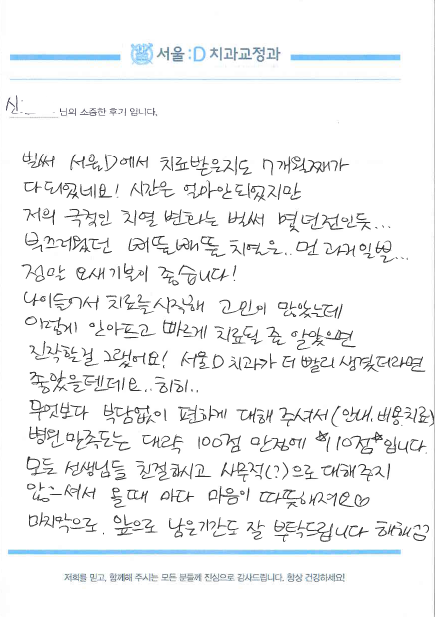 서울:D 치과교정과
신 님의 소중한 후기 입니다.
벌써 서울D에서 치료받은지도 7개월째가
다되었네요! 시간은 얼마안되었지만
저의 극적인 치열 변화는 벌써 몇년전인듯...
부끄러웠던 삐뚤빼뚤 치열은.. 먼 과거일뿐...
정말 요새기분이 좋습니다!
나이들어서 치료를시작해 고민이 많았는데
이렇게 안아프고 빠르게 치료될 줄 알았으면
진작할걸 그랬어요! 서울D치과가 더 빨리 생겼더라면
좋았을텐데요..히히..
무엇보다 부담없이 편하게 대해 주셔서(안내,비용,치료)
병원만족도는 대략 100점 만점에 *110점*입니다.
모든 선생님들 친절하시고 사무적(?)으로 대해주지
않으셔서 올때 마다 마음이 따뜻해져요♡
마지막으로, 앞으로 남은기간도 잘 부탁드립니다
저희를 믿고, 함께해 주시는 모든 분들께 진심으로 감사드립니다. 항상 건강하세요!